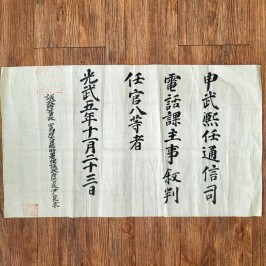 申武熙任通信司
電話課主事敍判
任官八等者
光武五年十一月二十三日
議政府贊政